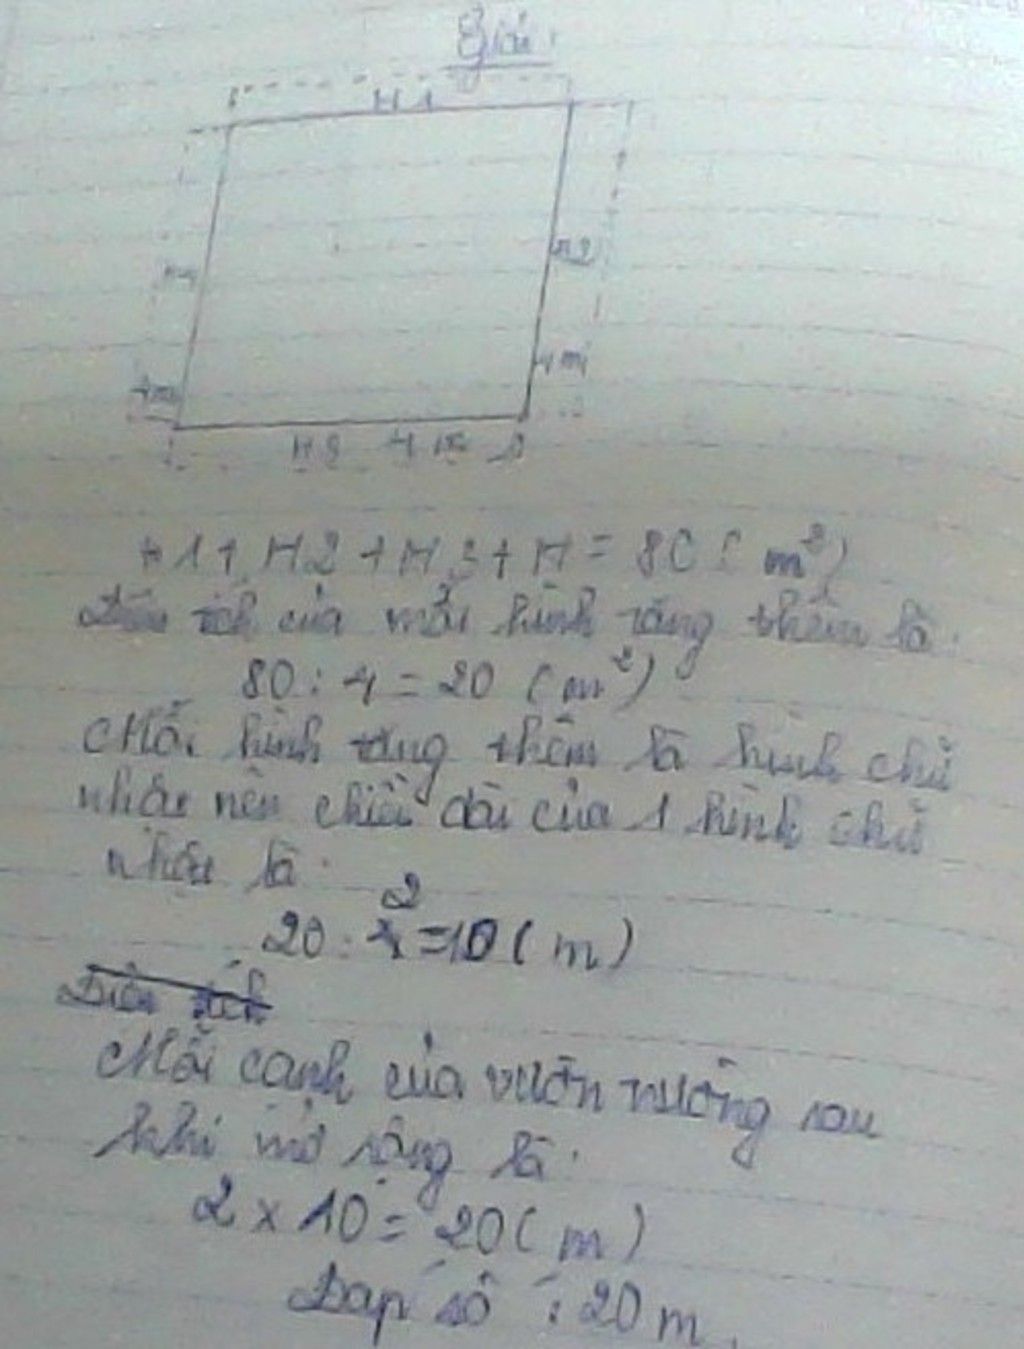 Giải:
H1
H2
4m
4m
H3 4m
H1 + H2 + H3 + H = 80 (m²)
Diện tích của mỗi hình tăng thêm là:
80 : 4 = 20 (m²)
Mỗi hình tăng thêm là hình chữ
nhật nên chiều dài của 1 hình chữ
nhật là:
20 : 2 = 10 (m)
Diện tích
Mỗi cạnh của vườn vuông sau
khi mở rộng là:
2 x 10 = 20 (m)
Đáp số : 20 m.